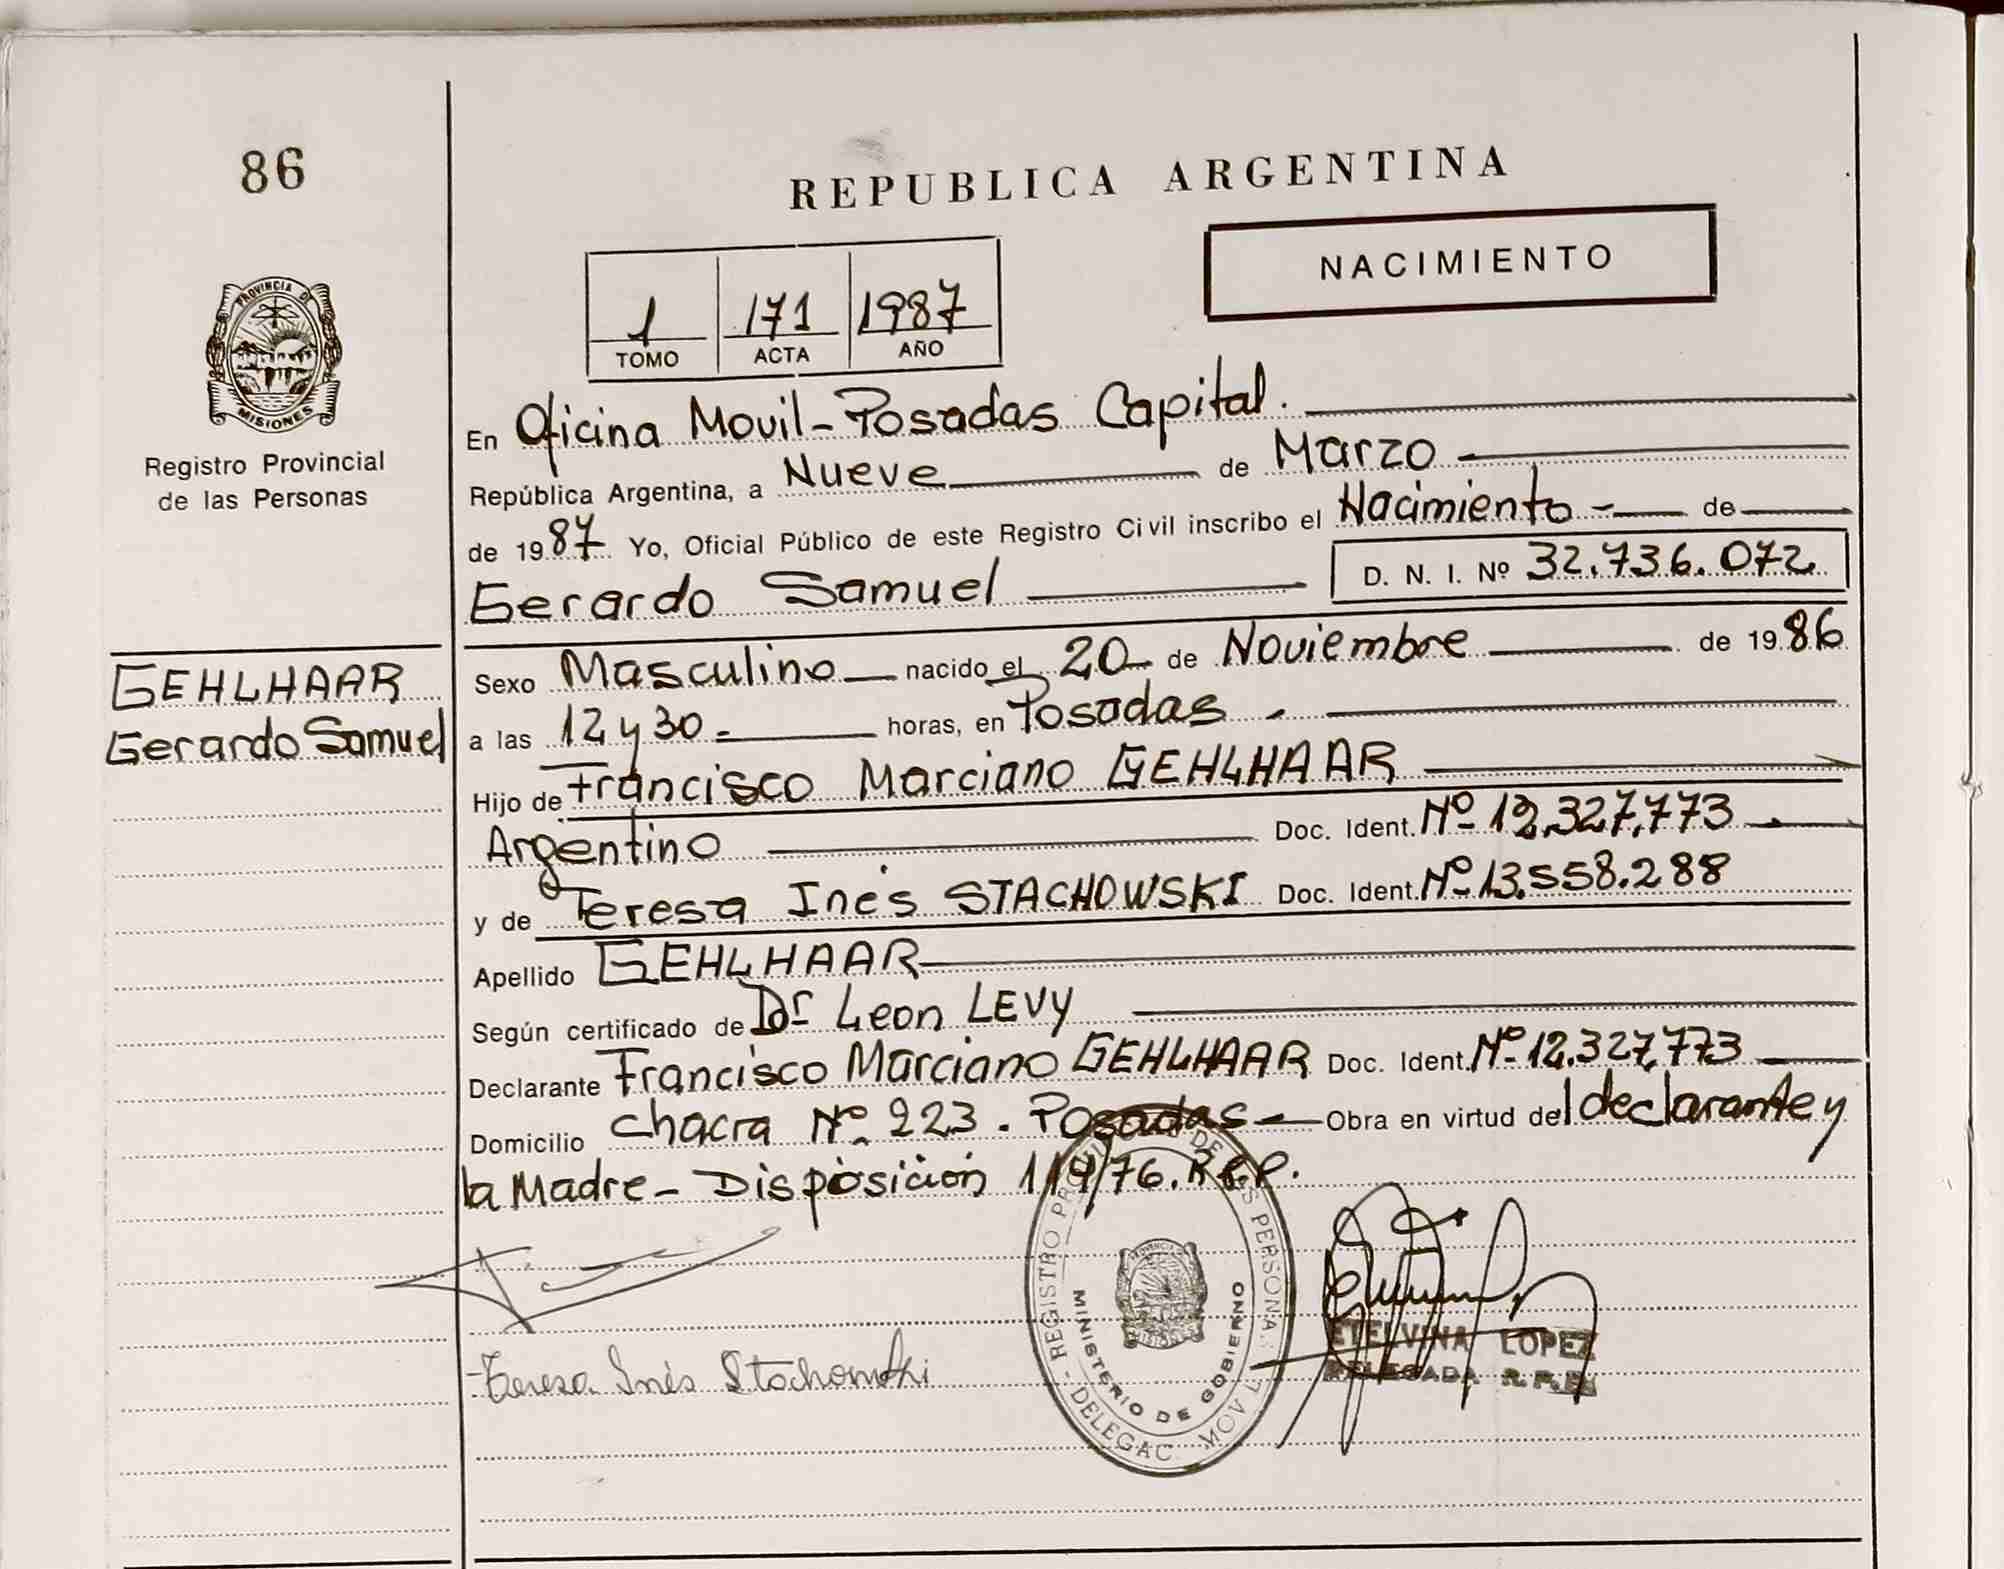 86
REPUBLICA ARGENTINA
NACIMIENTO
1 171 1987
TOMO ACTA AÑO
PROVINCIA DE
MISIONES
Registro Provincial
de las Personas
En Oficina Movil-Posadas Capital.
República Argentina, a Nueve de Marzo
de 1987 Yo, Oficial Público de este Registro Civil inscribo el Nacimiento - de
Gerardo Samuel D. N. I. Nº 32.736.072
GEHLHAAR
Gerardo Samuel
Sexo Masculino nacido el 20 de Noviembre de 1986
a las 12 y 30 - horas, en Posadas -
Hijo de Francisco Marciano GEHLHAAR
Argentino Doc. Ident. Nº 12.327.773
y de Teresa Inés STACHOWSKI Doc. Ident. Nº 13.558.288
Apellido GEHLHAAR
Según certificado de Dr Leon LEVY
Declarante Francisco Marciano GEHLHAAR Doc. Ident. Nº 12.327.773
Domicilio chacra Nº 223. Posadas - Obra en virtud del declarante y
la Madre - Disposición 114/76. R.P.P.
Teresa Inés Stachowski
REGISTRO PROVINCIAL DE LAS PERSONAS
MINISTERIO DE GOBIERNO
- DELEGAC. MOVIL
ETELVINA LOPEZ
DELEGADA R.P.P.